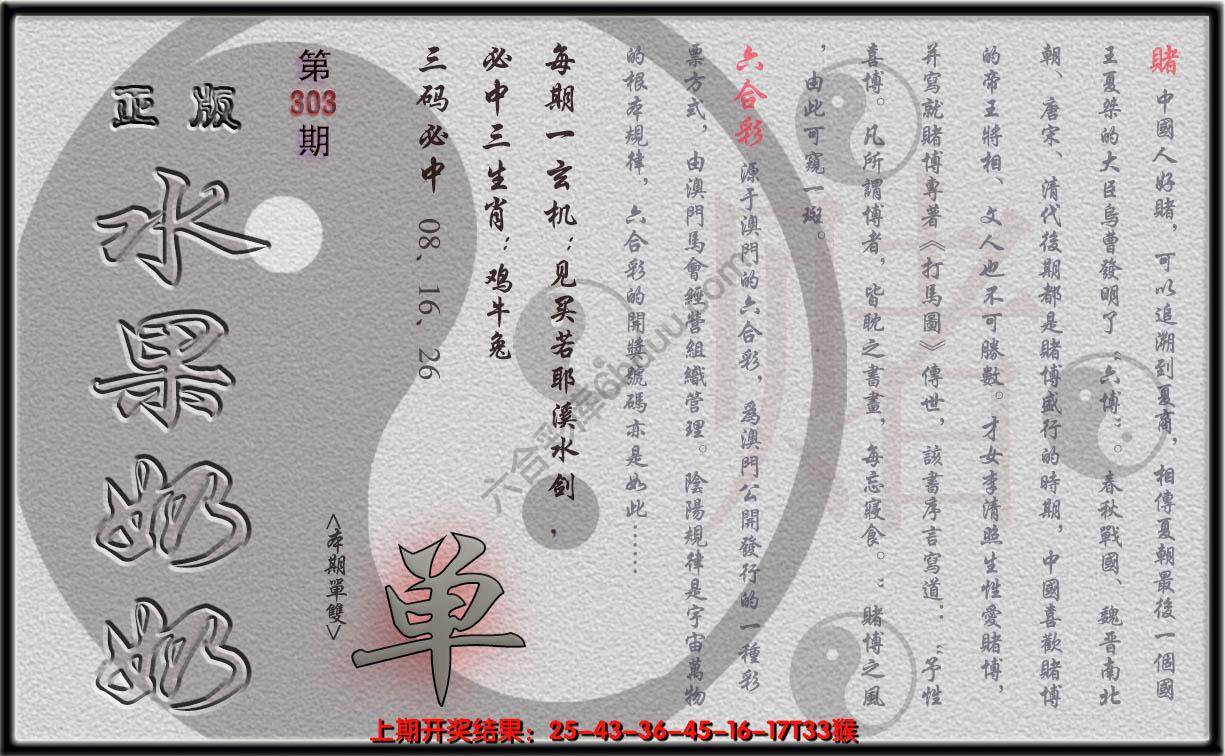 賭 中國人好賭，可以追溯到夏商，相傳夏朝最後一個國
王夏桀的大臣烏曹發明了“六博”。春秋戰國、魏晋南北
朝、唐宋、清代後期都是賭博盛行的時期，中國喜歡賭博
的帝王將相、文人也不可勝數。才女李清照生性愛賭博，
并寫就賭博專著《打馬圖》傳世，該書序言寫道：“予性
喜博。凡所謂博者，皆耽之書畫，每忘寢食。”賭博之風
，由此可窺一斑。
六合彩 源于澳門的六合彩，爲澳門公開發行的一種彩
票方式，由澳門馬會經營組織管理。陰陽規律是宇宙萬物
的根本規律，六合彩的開獎號碼亦是如此……
每期一玄机：见买若耶溪水剑，
必中三生肖：鸡牛兔
三码必中 08、16、26
第303期
正版
水果奶奶
<本期單雙>
单
賭
六合彩库6huuu.com
上期开奖结果：25-43-36-45-16-17T33猴